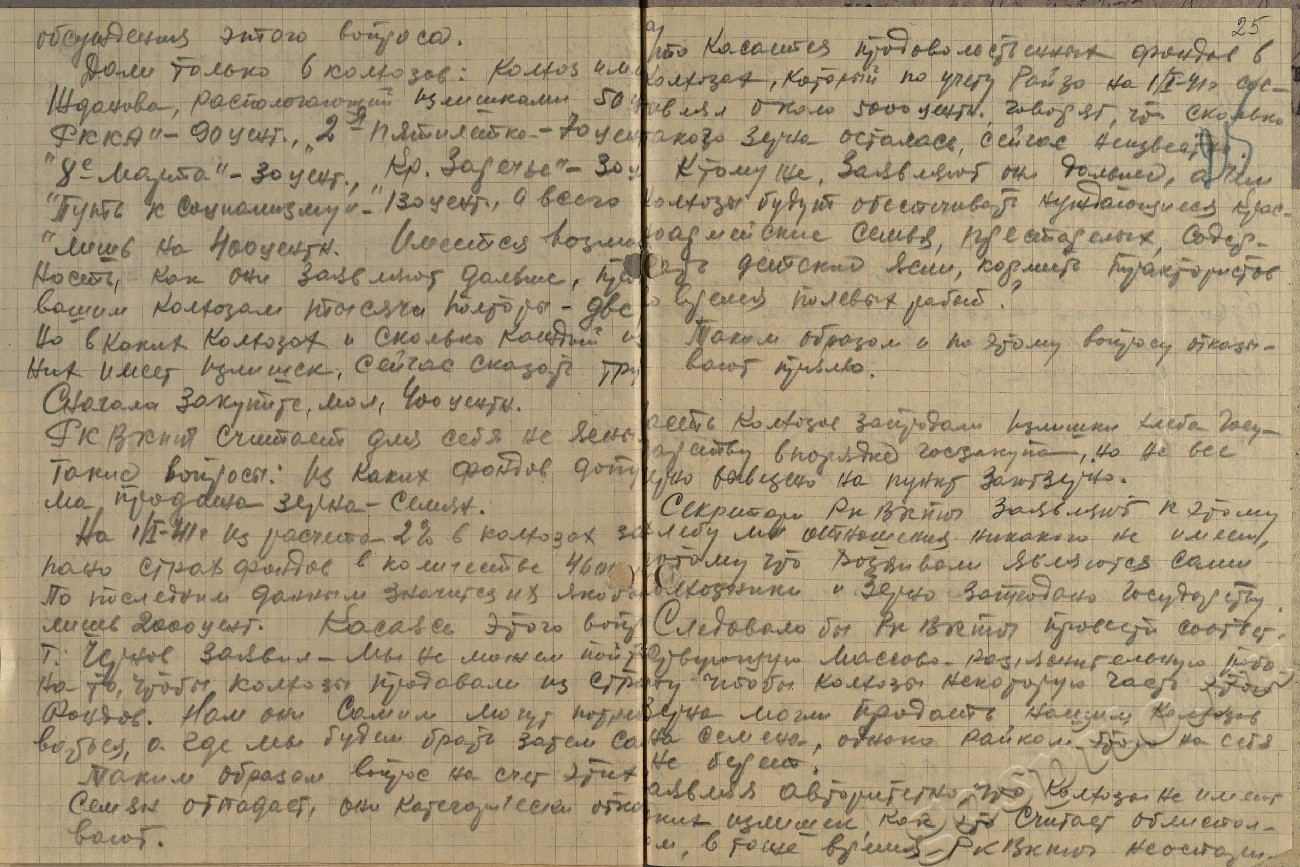 обсуждения этого вопроса.
Дали только 6 колхозов: Колхоз им.
Жданова, располагающий излишками 50
РККА" – 90 цент., "2я пятилетка – 70 цент
"8е Марта" – 30 цент., Кр. Заречье" – 30
"Путь к социализму" – 130 цент, а всего
"лишь на 400 центн. Имеется возмож
ность, как они заявляют дальше, про
вашим колхозам тысячи полторы – две,
Но в каких колхозах и сколько каждый из
них имеет излишек, сейчас сказать тру
Сначала закупите, мол, 400 центн.
РК ВКПб считает для себя не ясны
такие вопросы: из каких фондов допу
ма продажа зерна – семян.
На 1/I-41г из расчета 2% в колхозах за
пано страхфондов в количестве 46
По последним данным значится их якобы
лишь 2000 цент. Касаясь этого вопр
т. Чернов заявил – мы не можем пойти
на то, чтобы колхозы продавали из страх
фондов. Нам они самим могут потре
боваться, а где мы будем брать затем са
Таким образом вопрос на счет этих
семян отпадает, они категорически отка
вают.
25
что касается продовольственных фондов в
колхозах, который по учету Райзо на 1/I-41г сос-
тавлял около 5000 центн. говорят, что сколько
такого зерна осталось, сейчас неизвестно.
К тому же, заявляют они дальше, а чем
колхозы будут обеспечивать нуждающиеся крас-
ноармейские семьи, престарелых, содер-
жать детский ясли, кормить трактористов
во время полевых работ?
Таким образом и по этому вопросу отказы-
вают прямо.
Часть колхозов запродали излишки хлеба госу-
дарству в порядке госзакупа, но не все
зерно вывезено на пункт Заготзерно.
Секретари РК ВКПб заявляют к этому
хлебу мы отношения никакого не имеем,
потому что хозяевами являются сами
колхозники и зерно запродано государству.
Следовало бы РК ВКПб провести соответ-
ствующую массово-разъяснительную рабо
ту чтобы колхозы некоторую часть этого
зерна могли продать нашим колхозам
на семена, однако райком этого на себя
не берет.
Заявляя авторитетно, что колхозы не имеют
таких излишек, как это считает облисполком
в тоже время РК ВКПб